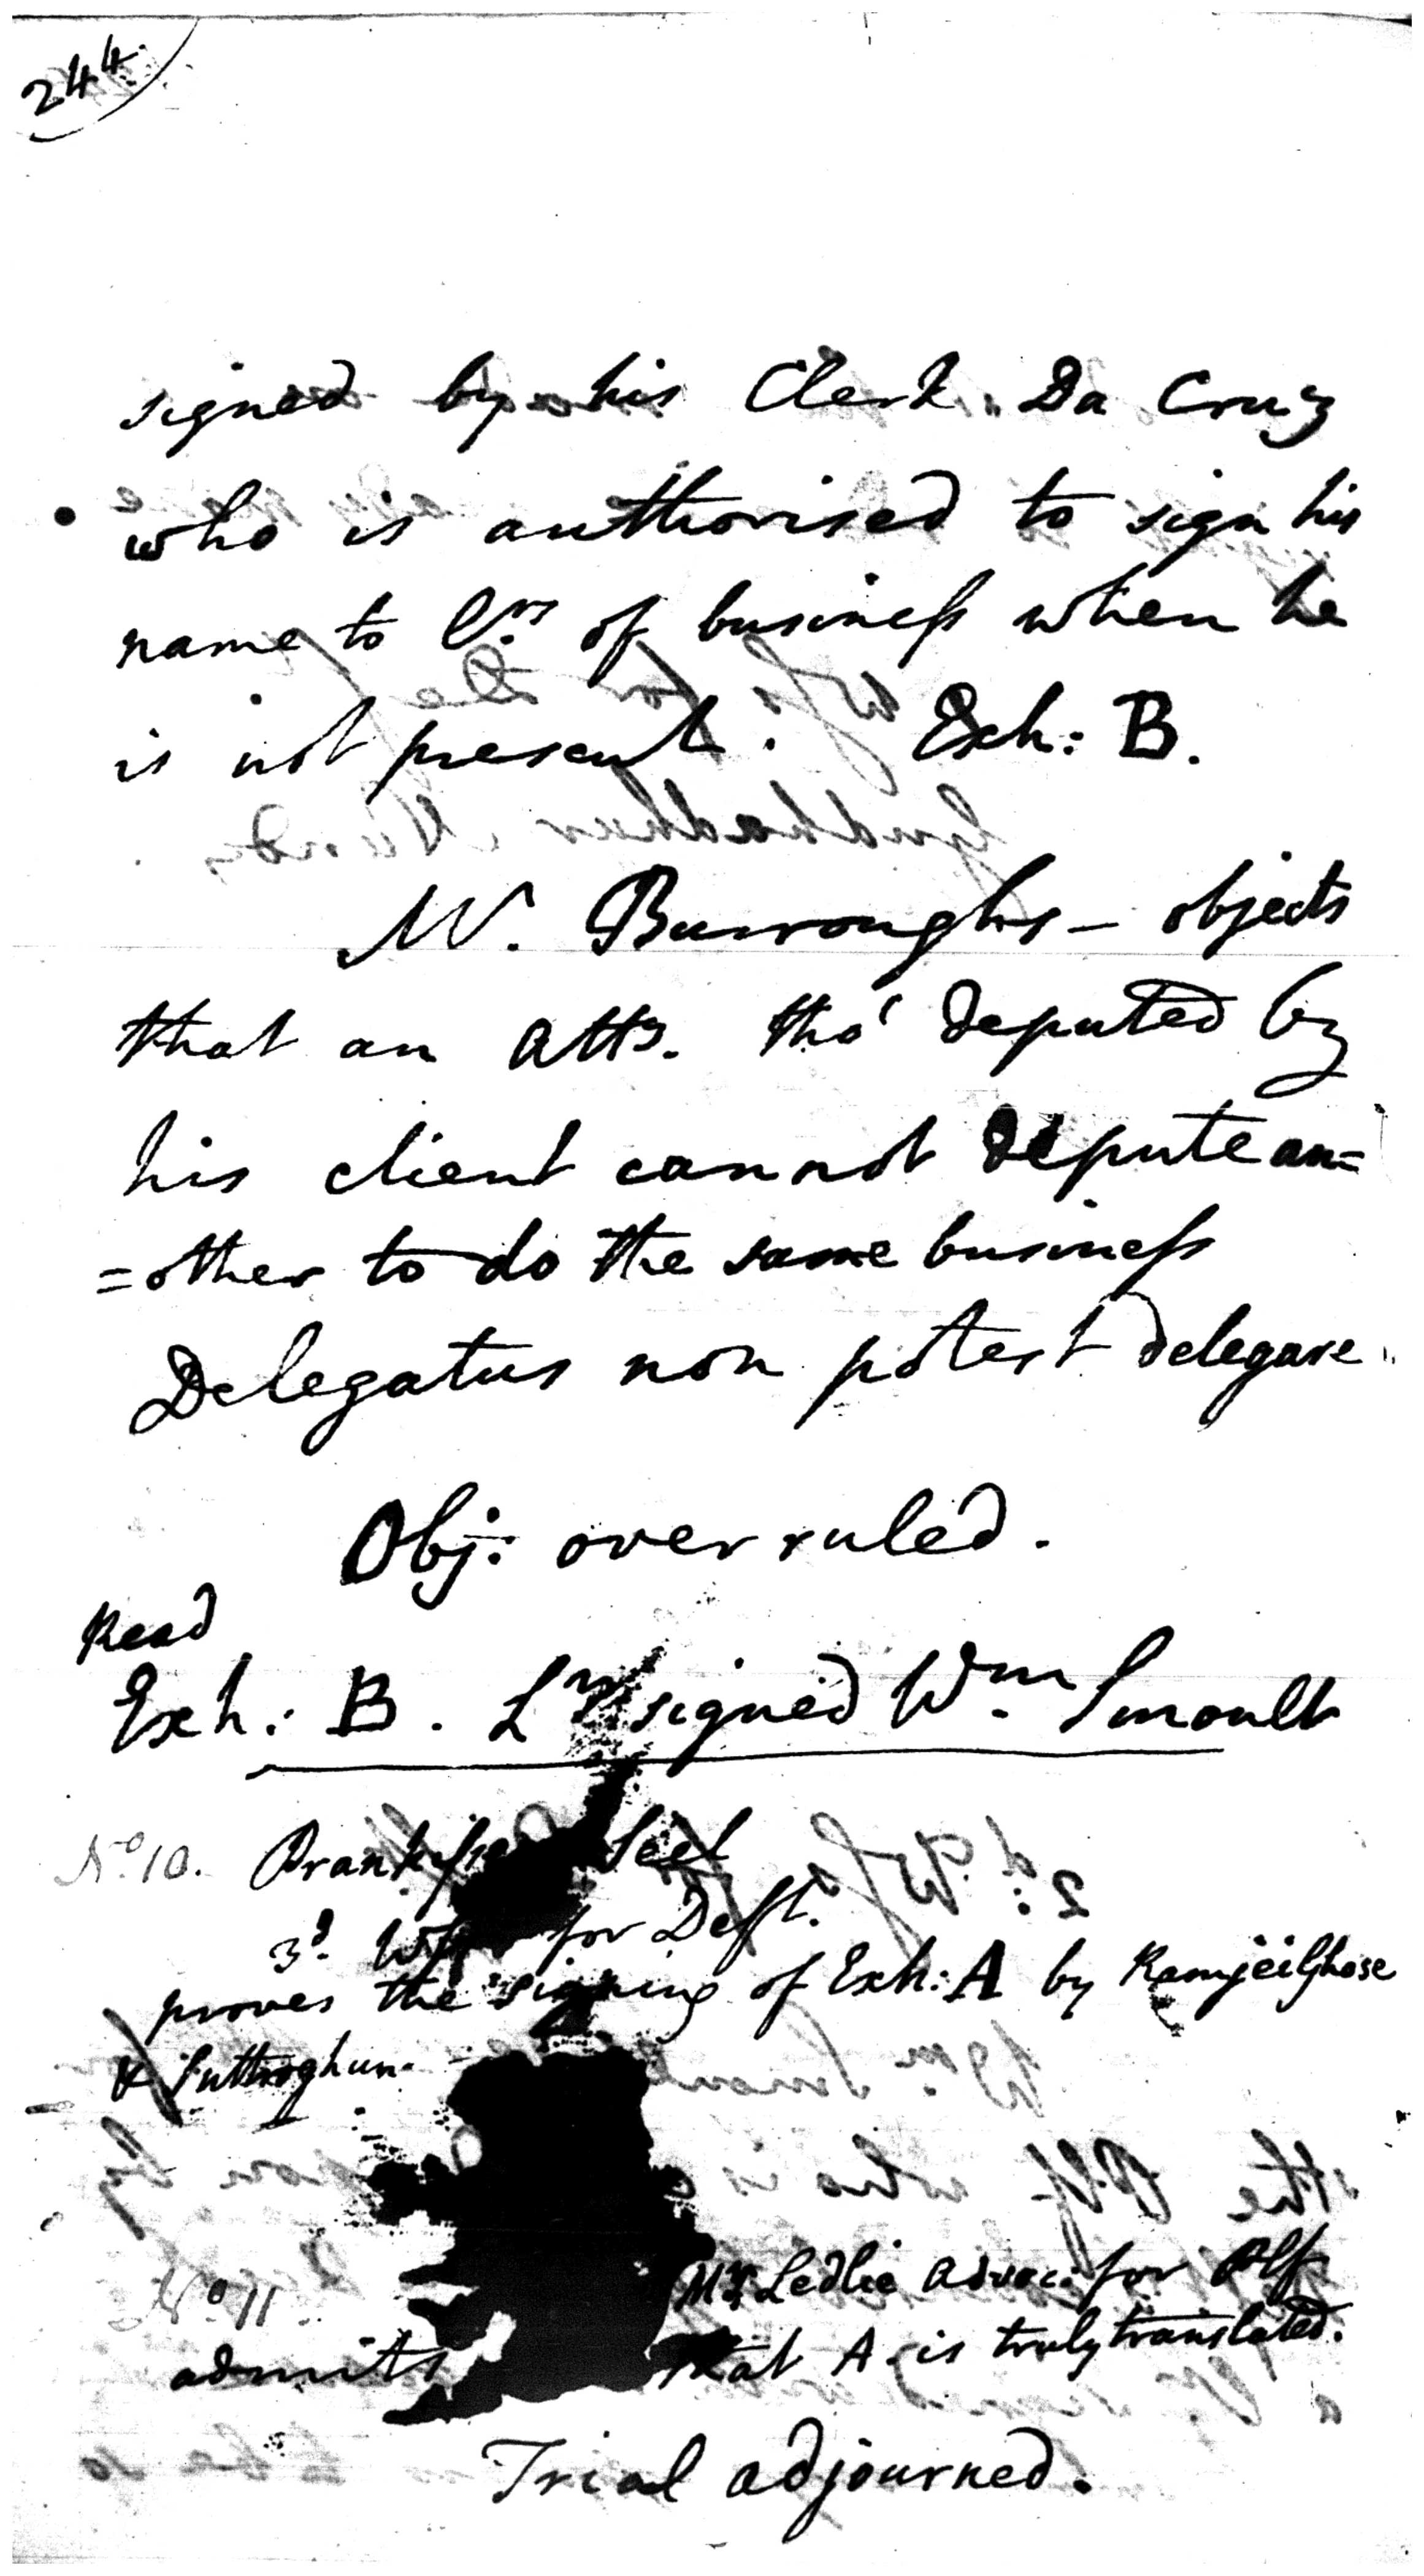 244.
signed by his Clerk Da Cruz
who is authorised to sign his
name to l.rs of business when he
is not present. Exh: B.
Mr. Burroughs - objects
that an atty. tho' deputed by
his client cannot depute an=
=other to do the same business
Delegatus non potest delegare
Obj: overruled.
Read
Exh: B. Lr signed Wm. Smoult
No. 10. Seel
3d. for Deft.
proves the signing of Exh: A by Ramjei Ghose
&
No. 11 Mr. Ledlie advoc: for Plf
admits that A is truly translated.
Trial adjourned.